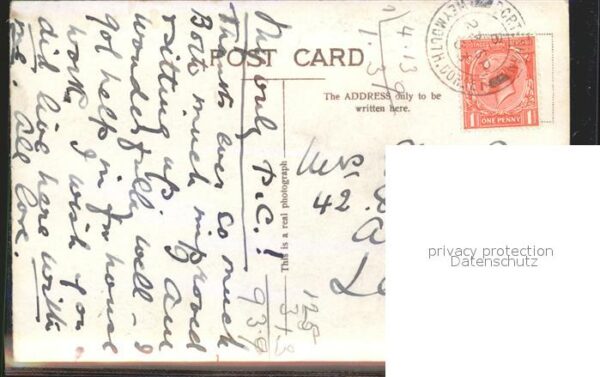 POST CARD
The ADDRESS only to be
written here.
This is a real photograph
ONE PENNY
1
1
My only P.C.!
Thanks ever so much
Both much improved
sitting up. Am
wonderfully well - &
got help in for house
work. I wish you
did live here write
me. All love.
Mrs
42.
4.139
1.31
939
313
privacy protection
Datenschutz